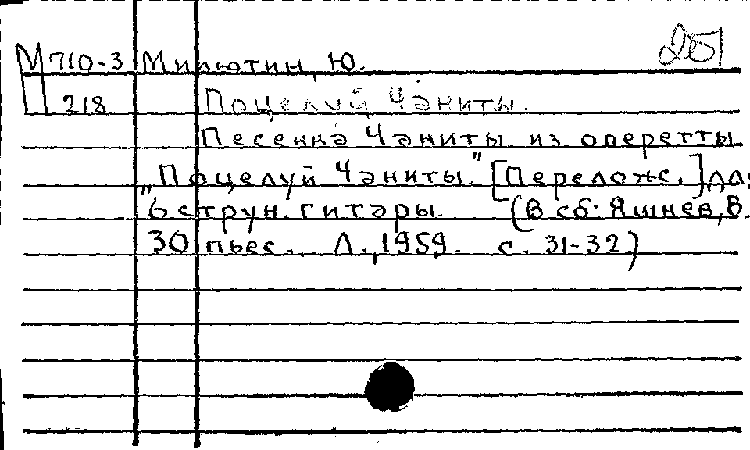 М710-3 Милютин, Ю.
218 Поцелуй Чаниты.
Песенка Чаниты из оперетты
„Поцелуй Чаниты." [Перелож.] для
6струн. гитары (В сб: Яшнев, В.
30 пьес. Л., 1959. с. 31-32)